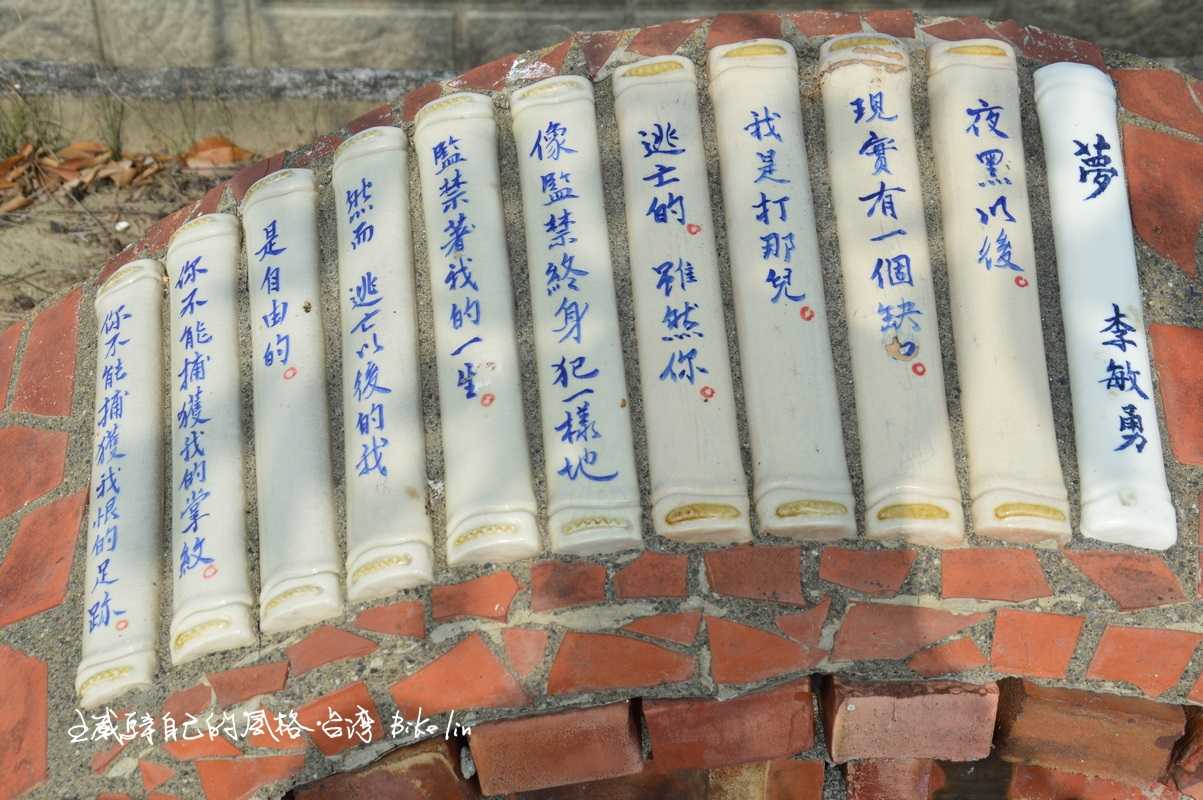 夢 李敏勇
夜黑以後。
現實有一個缺口。
我是打那兒。
逃亡的。雖然你。
像監禁終身犯一樣地
監禁著我的一生。
然而 逃亡以後的我
是自由的。
你不能捕獲我的掌紋。
你不能捕獲我恨的足跡。
自己的風格.台湾 Biko lin